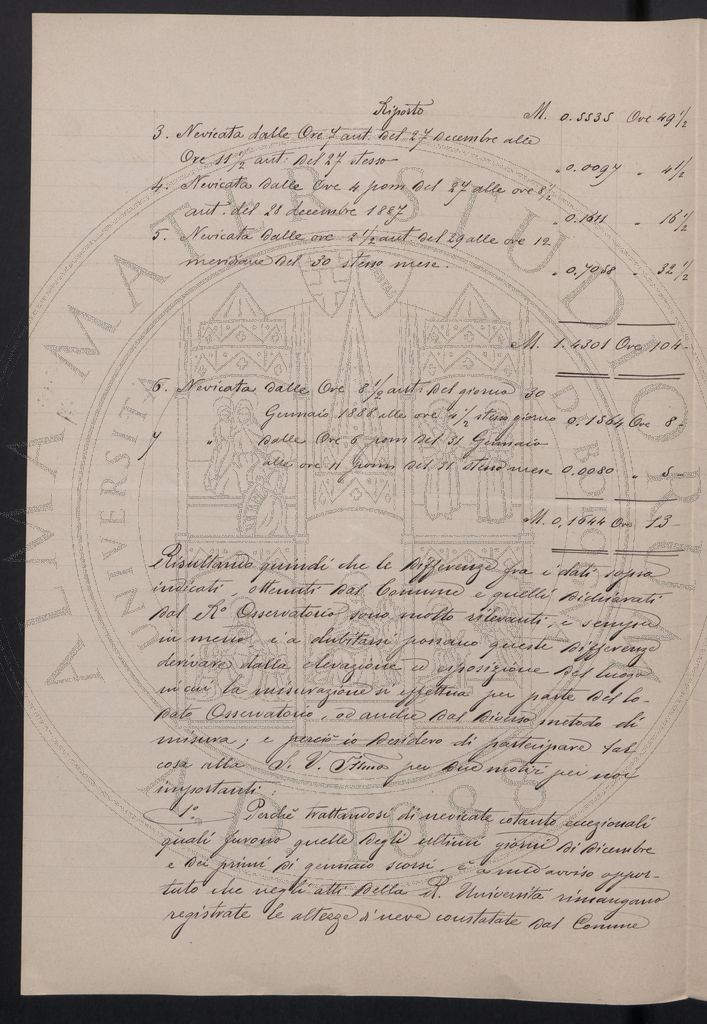 Riporto M. 0.5535 Ore 49 1/2
3. Nevicata dalle Ore 7 ant. del 27 decembre alle
Ore 11 1/2 ant. del 27 stesso " 0.0097 " 4 1/2
4. Nevicata dalle Ore 4 pom del 27 alle ore 8 1/2
ant. del 28 decembre 1887 " 0.1611 " 16 1/2
5. Nevicata dalle ore 2 1/2 ant. del 29 alle ore 12
meridiane del 30 stesso mese. " 0,7058 " 32 1/2
M. 1.4301 Ore 104 -
6. Nevicata dalle Ore 8 1/2 ant. del giorno 30
Gennaio 1888 alle ore 4 1/2 stesso giorno 0.1564 Ore 8 -
7 " dalle Ore 6 pom del 31 Gennaio
alle ore 11 pom del 31 stesso mese 0.0080 " 5 -
M. 0,1644 Ore 13 -
Risultando quindi che le differenze fra i dati sopra
indicati, ottenuti dal Comune e quelli dichiarati
dal R.o Osservatorio sono molto rilevanti, e sempre
in meno, è a dubitarsi possano queste differenze
derivare dalla elevazione ed esposizione del luogo
in cui la misurazione si effettua per parte del lo-
dato Osservatorio, od anche dal diverso metodo di
misura; e perciò io desidero di partecipare tal
cosa alla S. V. Illma per due motivi per noi
importanti:
1.o Perchè trattandosi di nevicate cotanto eccezionali
quali furono quelle degli ultimi giorni di dicembre
e dei primi di gennaio scorsi, è a mio avviso oppor-
tuno che negli atti della R. Università rimangano
registrate le altezze di neve constatate dal Comune
ALMA MATER STUDIORUM
UNIVERSITÀ DI BOLOGNA
A.D. 1088